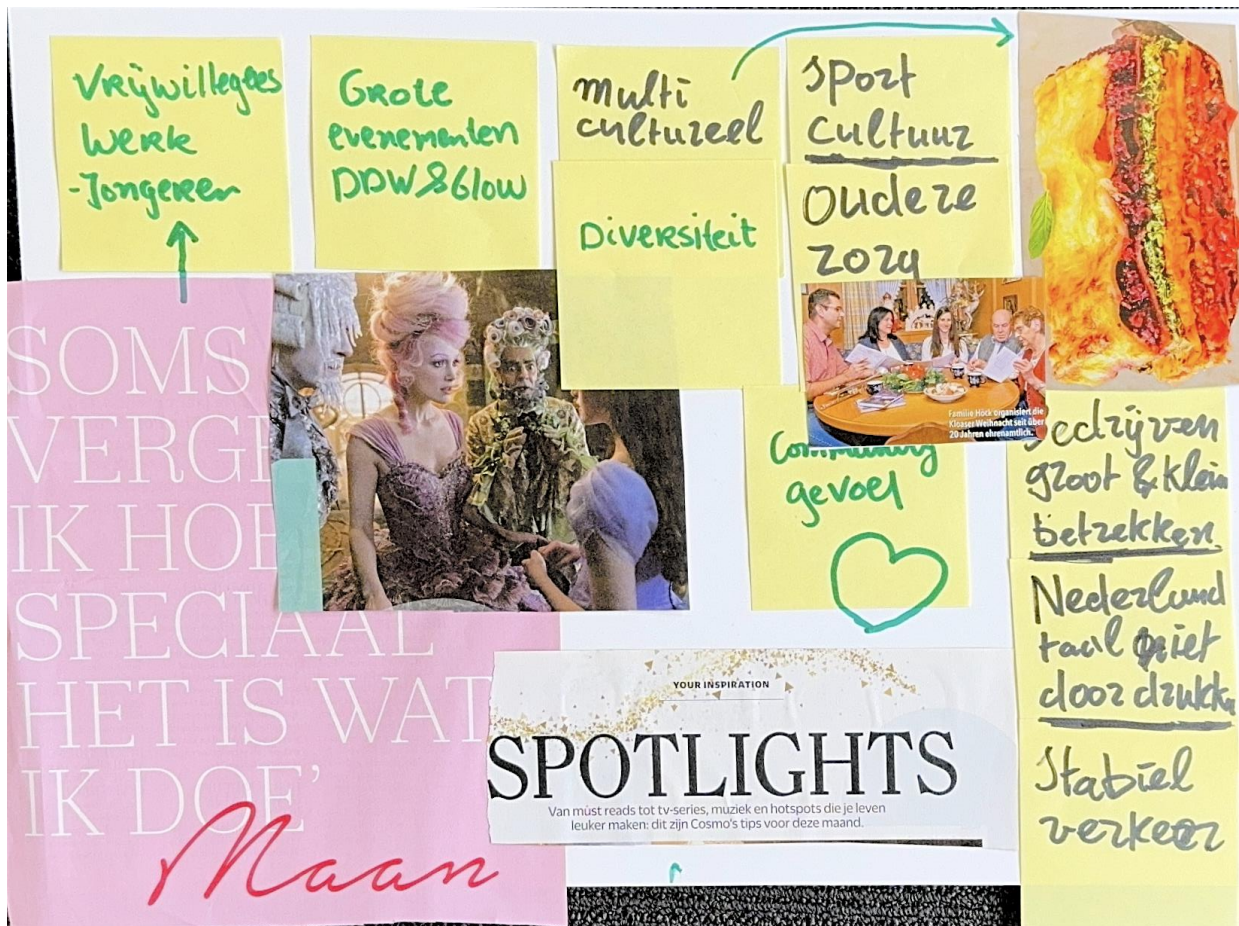 Vrijwilligers
Werk
-Jongeren
Grote
evenementen
DDW & Glow
Multi
cultureel
Diversiteit
Sport
cultuur
Oudere
zorg
Familie Höck organisiert die
Kloaser Weihnacht seit über
20 Jahren ehrenamtlich.
Community
gevoel
Bedrijven
groot & klein
betrekken
Nederland
taal niet
door drukken
Stabiel
verkeer
SOMS
VERGE
IK HOE
SPECIAAL
HET IS WAT
IK DOE'
Maan
YOUR INSPIRATION
SPOTLIGHTS
Van must reads tot tv-series, muziek en hotspots die je leven
leuker maken: dit zijn Cosmo's tips voor deze maand.